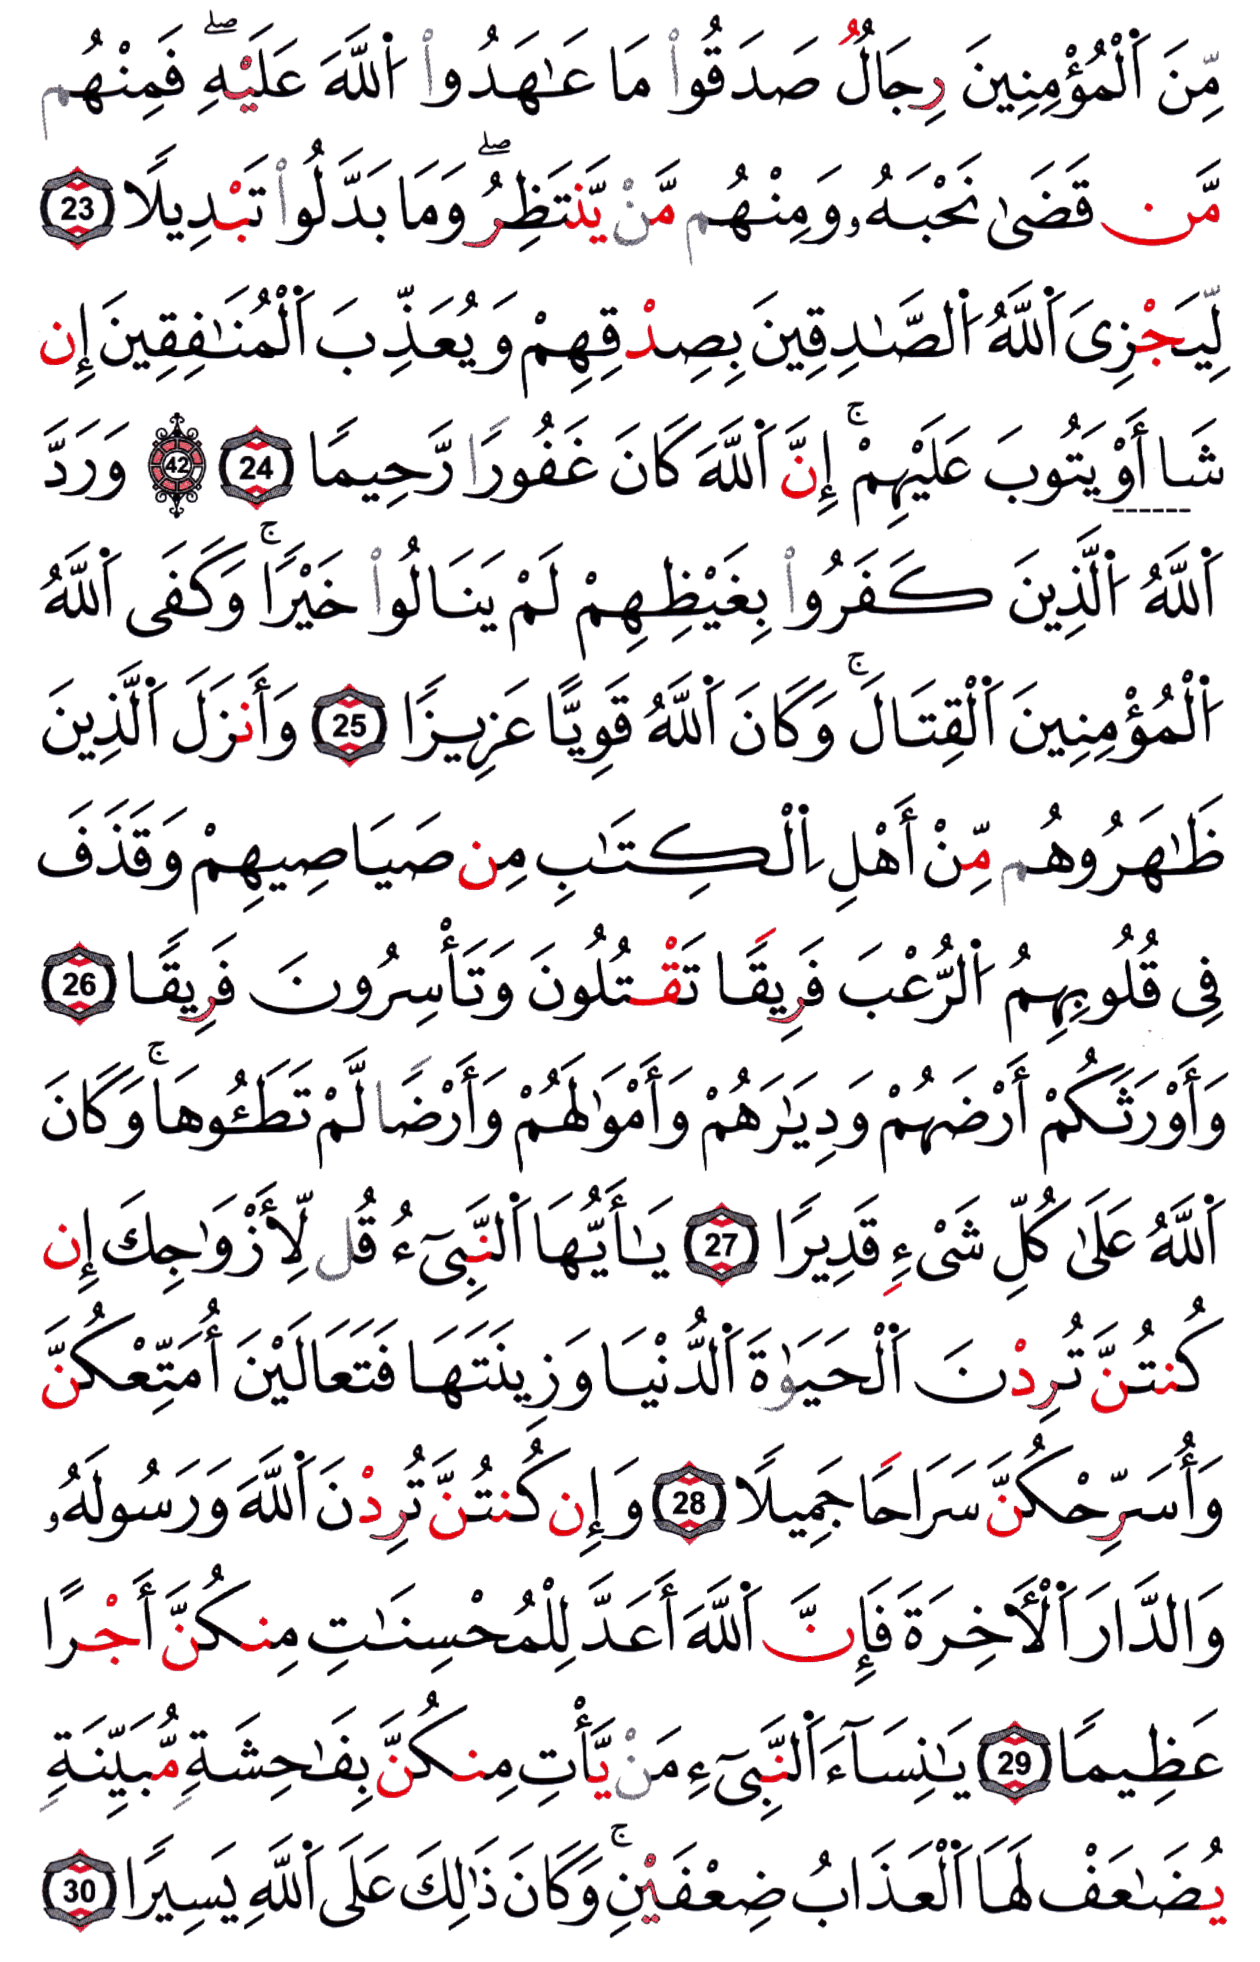 مِّنَ اَ۬لْمُؤْمِنِينَ رِجَالٌ صَدَقُواْ مَا عَٰهَدُواْ اُ۬للَّهَ عَلَيْهِۖ فَمِنْهُم
مَّن قَضَىٰ نَحْبَهُۥ وَمِنْهُم مَّنْ يَّنتَظِرُۖ وَمَا بَدَّلُواْ تَبْدِيلًا 23
لِّيَجْزِيَ اَ۬للَّهُ اُ۬لصَّٰدِقِينَ بِصِدْقِهِمْ وَيُعَذِّبَ اَ۬لْمُنَٰفِقِينَ إِن
شَا أَوْ يَتُوبَ عَلَيْهِمْۚ إِنَّ اَ۬للَّهَ كَانَ غَفُورًا رَّحِيمًا 24 42 وَرَدَّ
اَ۬للَّهُ اُ۬لَّذِينَ كَفَرُواْ بِغَيْظِهِمْ لَمْ يَنَالُواْ خَيْرًاۚ وَكَفَى اَ۬للَّهُ
اُ۬لْمُؤْمِنِينَ اَ۬لْقِتَالَۚ وَكَانَ اَ۬للَّهُ قَوِيًّا عَزِيزًا 25 وَأَنزَلَ اَ۬لَّذِينَ
ظَٰهَرُوهُم مِّنْ أَهْلِ اِ۬لْكِتَٰبِ مِن صَيَاصِيهِمْ وَقَذَفَ
فِي قُلُوبِهِمُ اُ۬لرُّعْبَ فَرِيقًا تَقْتُلُونَ وَتَأْسِرُونَ فَرِيقًا 26
وَأَوْرَثَكُمْ أَرْضَهُمْ وَدِيَٰرَهُمْ وَأَمْوَٰلَهُمْ وَأَرْضًا لَّمْ تَطَـُٔوهَاۚ وَكَانَ
اَ۬للَّهُ عَلَىٰ كُلِّ شَيْءٍ قَدِيرًا 27 يَٰأَيُّهَا اَ۬لنَّبِيٓءُ قُل لِّأَزْوَٰجِكَ إِن
كُنتُنَّ تُرِدْنَ اَ۬لْحَيَوٰةَ اَ۬لدُّنْيَا وَزِينَتَهَا فَتَعَالَيْنَ أُمَتِّعْكُنَّ
وَأُسَرِّحْكُنَّ سَرَاحًا جَمِيلًا 28 وَإِن كُنتُنَّ تُرِدْنَ اَ۬للَّهَ وَرَسُولَهُۥ
وَالدَّارَ اَ۬لْأَخِرَةَ فَإِنَّ اَ۬للَّهَ أَعَدَّ لِلْمُحْسِنَٰتِ مِنكُنَّ أَجْرًا
عَظِيمًا 29 يَٰنِسَآءَ اَ۬لنَّبِيٓءِ مَنْ يَّأْتِ مِنكُنَّ بِفَٰحِشَةٍ مُّبَيَّنَةٍ
يُضَٰعَفْ لَهَا اَ۬لْعَذَابُ ضِعْفَيْنِۚ وَكَانَ ذَٰلِكَ عَلَى اَ۬للَّهِ يَسِيرًا 30